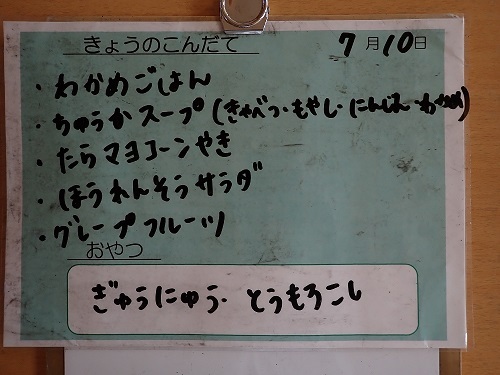 きょうのこんだて 7月10日
・わかめごはん
・ちゅうかスープ(きゃべつ・もやし・にんじん・わかめ)
・たらマヨコーンやき
・ほうれんそうサラダ
・グレープフルーツ
おやつ
ぎゅうにゅう・とうもろこし